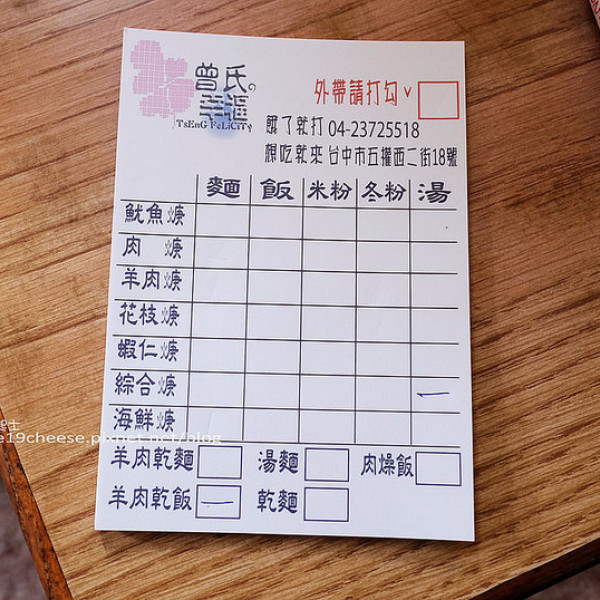 曾氏の
幸福
TsEnG FeLiCiTy
外帶請打勾 ˅
餓了就打 04-23725518
想吃就來 台中市五權西二街18號
麵 飯 米粉 冬粉 湯
魷魚焿
肉 焿
羊肉焿
花枝焿
蝦仁焿
綜合焿 一
海鮮焿
e19cheese.pixnet.net/blog
羊肉乾麵 湯麵 肉燥飯
羊肉乾飯 一 乾麵